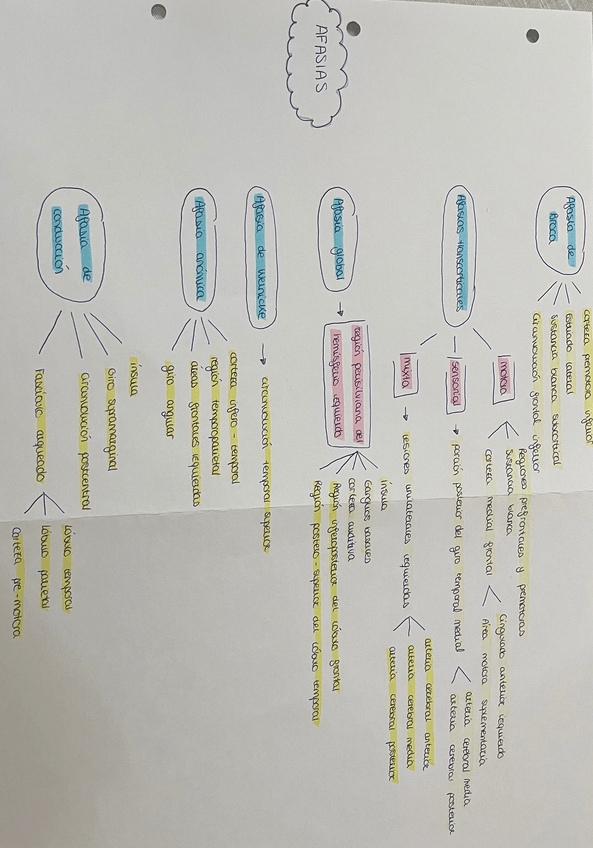 AFASIAS
Afasia de
Broca
corteza premotora inferior
Estriado lateral
sustancia blanca subcortical
Circunvolución frontal inferior
Afasias transcorticales
motora
Regiones prefrontales y premotoras
sustancia blanca
corteza medial frontal
Cingulado anterior izquierdo
Área motora suplementaria
sensorial
porción posterior del giro temporal medial
arteria cerebral media
arteria cerebral posterior
mixta
lesiones unilaterales izquierdas
arteria cerebral anterior
arteria cerebral media
arteria cerebral posterior
Afasia global
región perisilviana del
hemisferio izquierdo
ínsula
Ganglios basales
corteza auditiva
Región inferoposterior del lóbulo frontal
Región postero-superior del lóbulo temporal
Afasia de Wernicke
circunvolución temporal superior
Afasia anómica
corteza infero-temporal
región temporoparietal
áreas frontales izquierdas
giro angular
Afasia de
conducción
ínsula
Giro supramarginal
circunvolución postcentral
Fascículo arqueado
lóbulo temporal
lóbulo parietal
corteza pre-motora